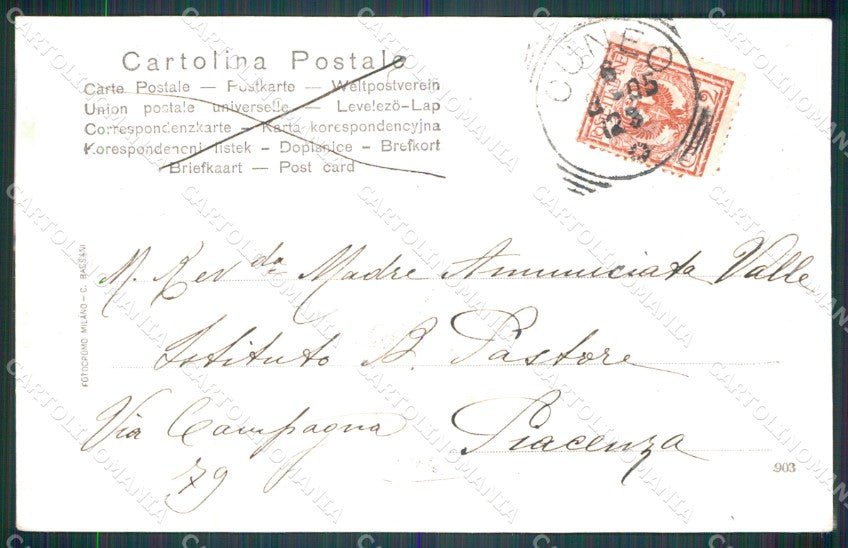 Cartolina Postale
Carte Postale — Postkarte — Weltpostverein
Union postale universelle — Levelező-Lap
Correspondenzkarte — Karta korespondencyjna
Korespondencni listek — Dopisnice — Brefkort
Briefkaart — Post card
CUNEO
POSTE ITALIANE
2
FOTOCROMO MILANO — C. BASSANI
M. Rev da Madre Annunciata Valle
Istituto B. Pastore
Via Campagna Piacenza
79
903
CARTOLINOMANIA